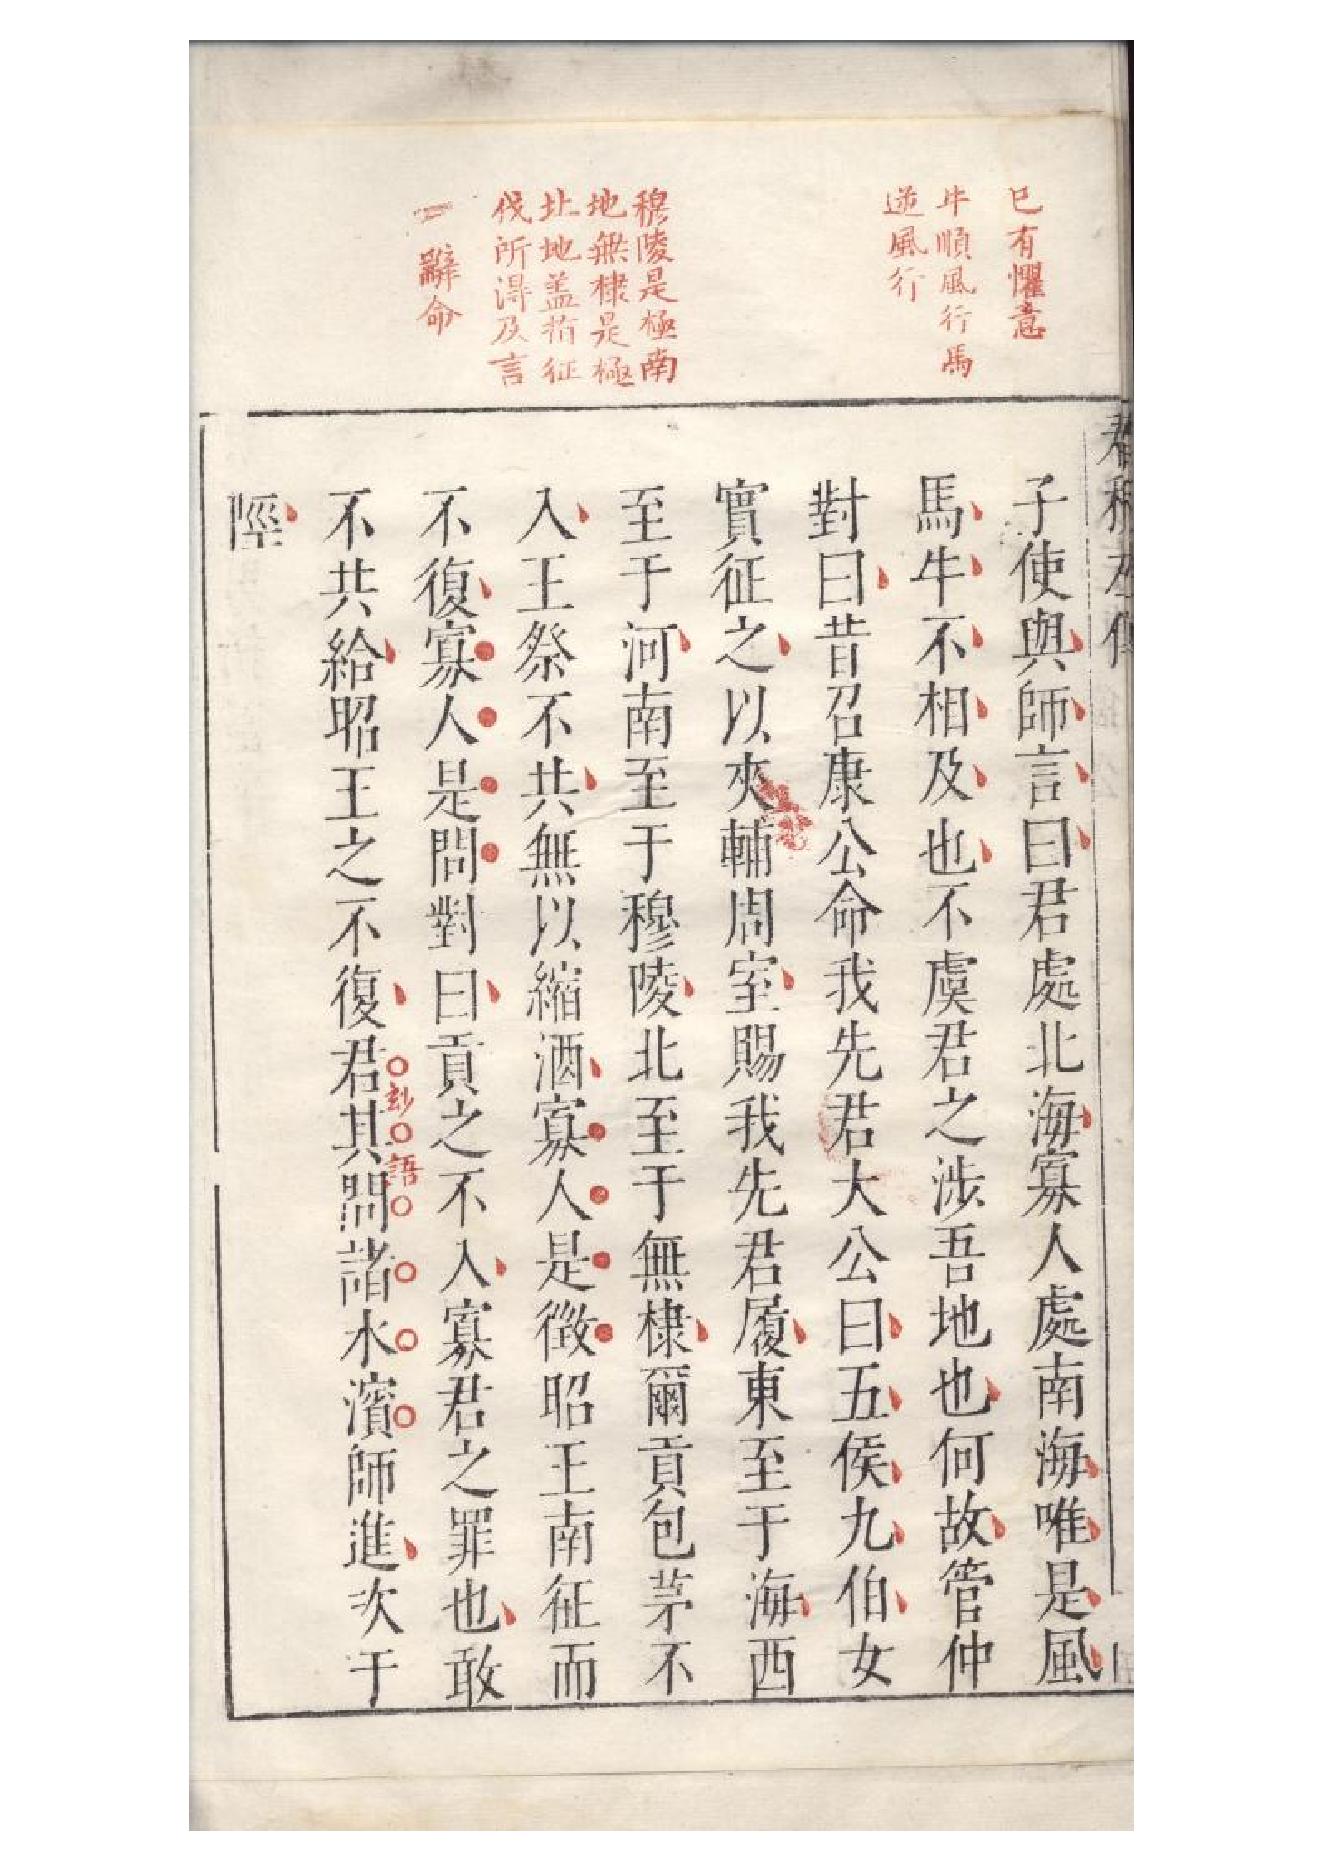 已有懼意
牛順風行馬
逆風行
穆陵是極南
地無棣是極
北地盖指征
伐所得及言
一辭命
子使與師言曰君處北海寡人處南海唯是風
馬牛不相及也不虞君之涉吾地也何故管仲
對曰昔召康公命我先君大公曰五侯九伯女
實征之以夾輔周室賜我先君履東至于海西
至于河南至于穆陵北至于無棣爾貢包茅不
入王祭不共無以縮酒寡人是徵昭王南征而
不復寡人是問對曰貢之不入寡君之罪也敢
不共給昭王之不復君其問諸水濱師進次于
玅語
陘